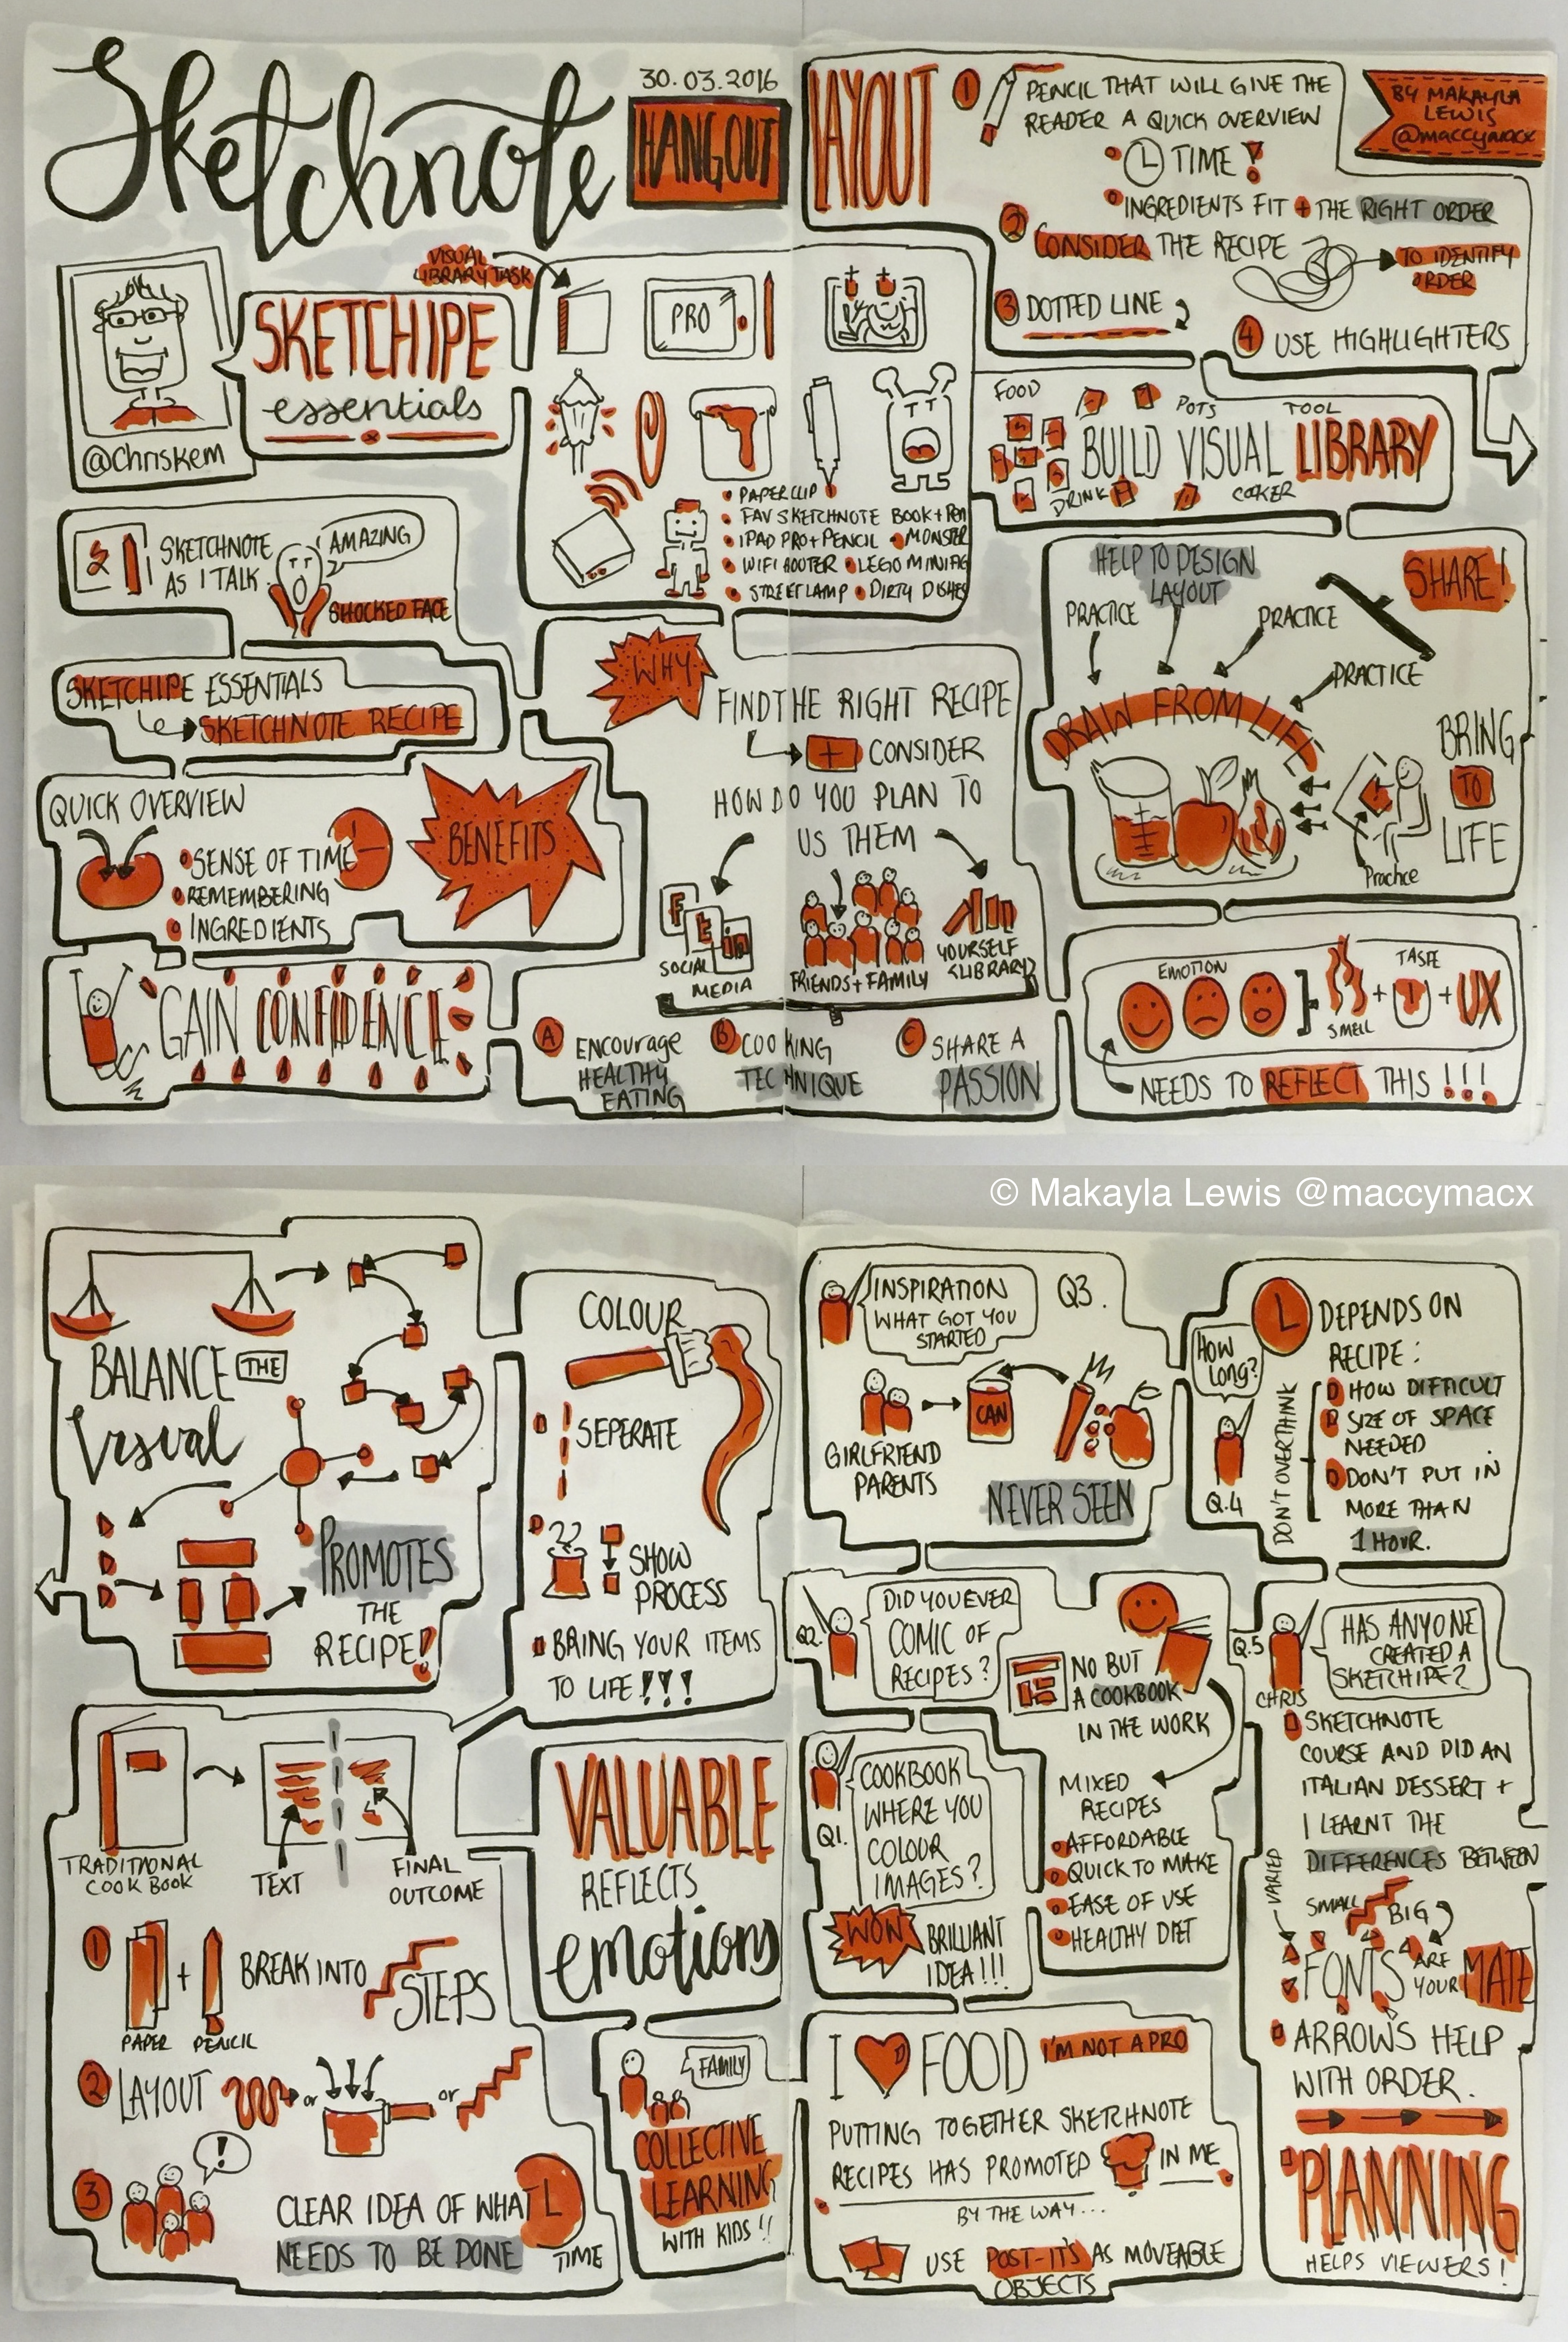 Sketchnote
30.03.2016
HANGOUT
@chriskem
SKETCHIPE
essentials
VISUAL
LIBRARY TASK
PRO
PAPERCLIP
FAV SKETCHNOTE BOOK + PEN
IPAD PRO + PENCIL • MONSTER
WIFI ROUTER • LEGO MINIFIG
STREETLAMP • DIRTY DISHES
SKETCHNOTE
AS I TALK
AMAZING
SHOCKED FACE
SKETCHIPE ESSENTIALS
SKETCHNOTE RECIPE
QUICK OVERVIEW
SENSE OF TIME
REMEMBERING
INGREDIENTS
BENEFITS
GAIN CONFIDENCE
WHY
FIND THE RIGHT RECIPE
+ CONSIDER
HOW DO YOU PLAN TO
US THEM
F
t
in
SOCIAL
MEDIA
FRIENDS + FAMILY
YOURSELF
(LIBRARY)
A ENCOURAGE
HEALTHY
EATING
B COOKING
TECHNIQUE
C SHARE A
PASSION
LAYOUT
1 PENCIL THAT WILL GIVE THE
READER A QUICK OVERVIEW
TIME!
INGREDIENTS FIT + THE RIGHT ORDER
2 CONSIDER THE RECIPE
TO IDENTIFY
ORDER
3 DOTTED LINE
4 USE HIGHLIGHTERS
BY MAKAYLA
LEWIS
@maccymacx
FOOD
POTS
TOOL
BUILD VISUAL LIBRARY
DRINK
COOKER
HELP TO DESIGN
LAYOUT
SHARE!
PRACTICE
PRACTICE
PRACTICE
DRAW FROM LIFE
BRING
TO
LIFE
Practice
EMOTION
SMELL
+
TASTE
+ UX
NEEDS TO REFLECT THIS !!!
© Makayla Lewis @maccymacx
BALANCE THE
Visual
PROMOTES
THE
RECIPE!
COLOUR
SEPERATE
SHOW
PROCESS
BRING YOUR ITEMS
TO LIFE!!!
TRADITIONAL
COOK BOOK
TEXT
FINAL
OUTCOME
1
+
PAPER
PENCIL
BREAK INTO
STEPS
2 LAYOUT
or
or
3
!
CLEAR IDEA OF WHAT
NEEDS TO BE DONE
TIME
VALUABLE
REFLECTS
emotions
FAMILY
COLLECTIVE
LEARNING
WITH KIDS!!
INSPIRATION
WHAT GOT YOU
STARTED
Q3.
GIRLFRIEND
PARENTS
CAN
NEVER SEEN
HOW
LONG?
Q.4
DON'T OVERTHINK
DEPENDS ON
RECIPE:
HOW DIFFICULT
SIZE OF SPACE
NEEDED
DON'T PUT IN
MORE THAN
1 HOUR.
Q2.
DID YOU EVER
COMIC OF
RECIPES?
NO BUT
A COOKBOOK
IN THE WORK
MIXED
RECIPES
AFFORDABLE
QUICK TO MAKE
EASE OF USE
HEALTHY DIET
Q1.
COOKBOOK
WHERE YOU
COLOUR
IMAGES?
WOW
BRILLIANT
IDEA!!!
Q.5
CHRIS
HAS ANYONE
CREATED A
SKETCHIPE?
SKETCHNOTE
COURSE AND DID AN
ITALIAN DESSERT +
I LEARNT THE
DIFFERENCES BETWEEN
VARIED
SMALL
BIG
FONTS ARE
YOUR MATE
ARROWS HELP
WITH ORDER.
PLANNING
HELPS VIEWERS!
I FOOD
I'M NOT A PRO
PUTTING TOGETHER SKETCHNOTE
RECIPES HAS PROMOTED IN ME
BY THE WAY...
USE POST-IT'S AS MOVEABLE
OBJECTS